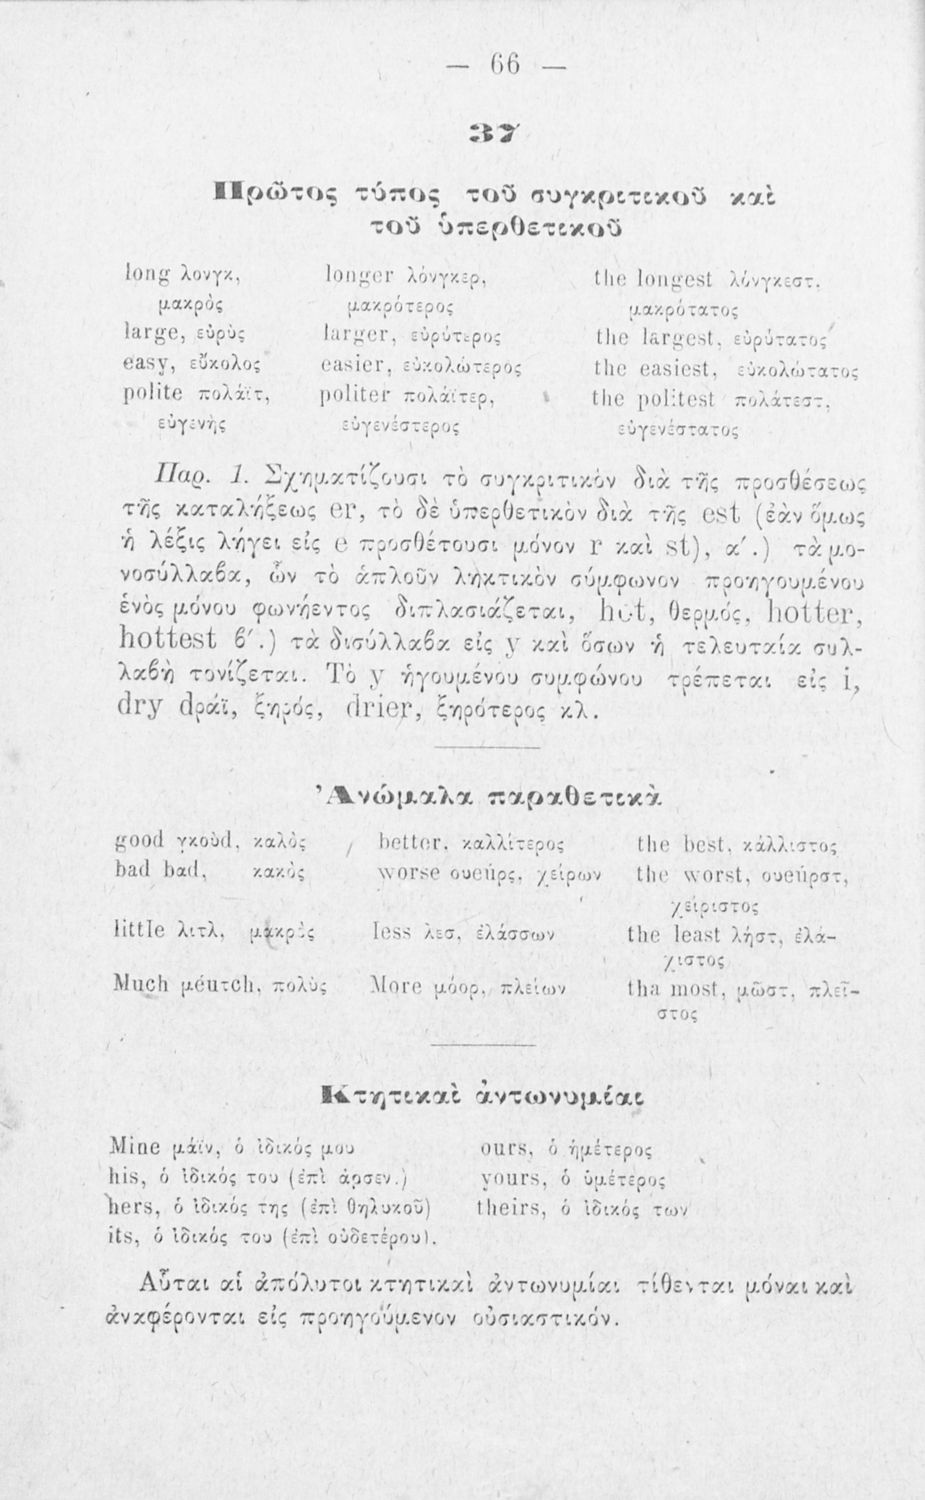 — 66 —
37
Πρῶτος τύπος τοῦ συγκριτικοῦ καὶ
τοῦ ὑπερθετικοῦ
long λονγκ, longer λόνγκερ, the longest λόνγκεστ.
μακρὸς μακρότερος μακρότατος
large, εὐρὺς larger, εὐρύτερος the largest, εὐρύτατος
easy, εὔκολος easier, εὐκολώτερος the easiest, εὐκολώτατος
polite πολάϊτ, politer πολάϊτερ, the politest πολάτεστ,
εὐγενὴς εὐγενέστερος εὐγενέστατος
Παρ. 1. Σχηματίζουσι τὸ συγκριτικὸν διὰ τῆς προσθέσεως
τῆς καταλήξεως er, τὸ δὲ ὑπερθετικὸν διὰ τῆς est (ἐὰν ὅμως
ἡ λέξις λήγει εἰς e προσθέτουσι μόνον r καὶ st), α΄.) τὰ μο-
νοσύλλαβα, ὧν τὸ ἁπλοῦν ληκτικὸν σύμφωνον προηγουμένου
ἑνὸς μόνου φωνήεντος διπλασιάζεται, hot, θερμός, hotter,
hottest β΄.) τὰ δισύλλαβα εἰς y καὶ ὅσων ἡ τελευταία συλ-
λαβὴ τονίζεται. Τὸ y ἡγουμένου συμφώνου τρέπεται εἰς i,
dry dράϊ, ξηρός, drier, ξηρότερος κλ.
Ἀνώμαλα παραθετικὰ
good γκοὺd, καλὸς better, καλλίτερος the best, κάλλιστος
bad bad, κακὸς worse ουεύρς, χείρων the worst, ουεύρστ,
χείριστος
little λιτλ, μικρὸς less λεσ, ἐλάσσων the least λήστ, ἐλά-
χιστος
Much μέuτch, πολὺς More μόορ, πλείων tha most, μῶστ, πλεῖ-
στος
Κτητικαὶ ἀντωνυμίαι
Mine μάϊν, ὁ ἰδικός μου ours, ὁ ἡμέτερος
his, ὁ ἰδικός του (ἐπὶ ἀρσεν.) yours, ὁ ὑμέτερος
hers, ὁ ἰδικός της (ἐπὶ θηλυκοῦ) theirs, ὁ ἰδικός των
its, ὁ ἰδικός του (ἐπὶ οὐδετέρου).
Αὗται αἱ ἀπόλυτοι κτητικαὶ ἀντωνυμίαι τίθενται μόναι καὶ
ἀναφέρονται εἰς προηγούμενον οὐσιαστικόν.